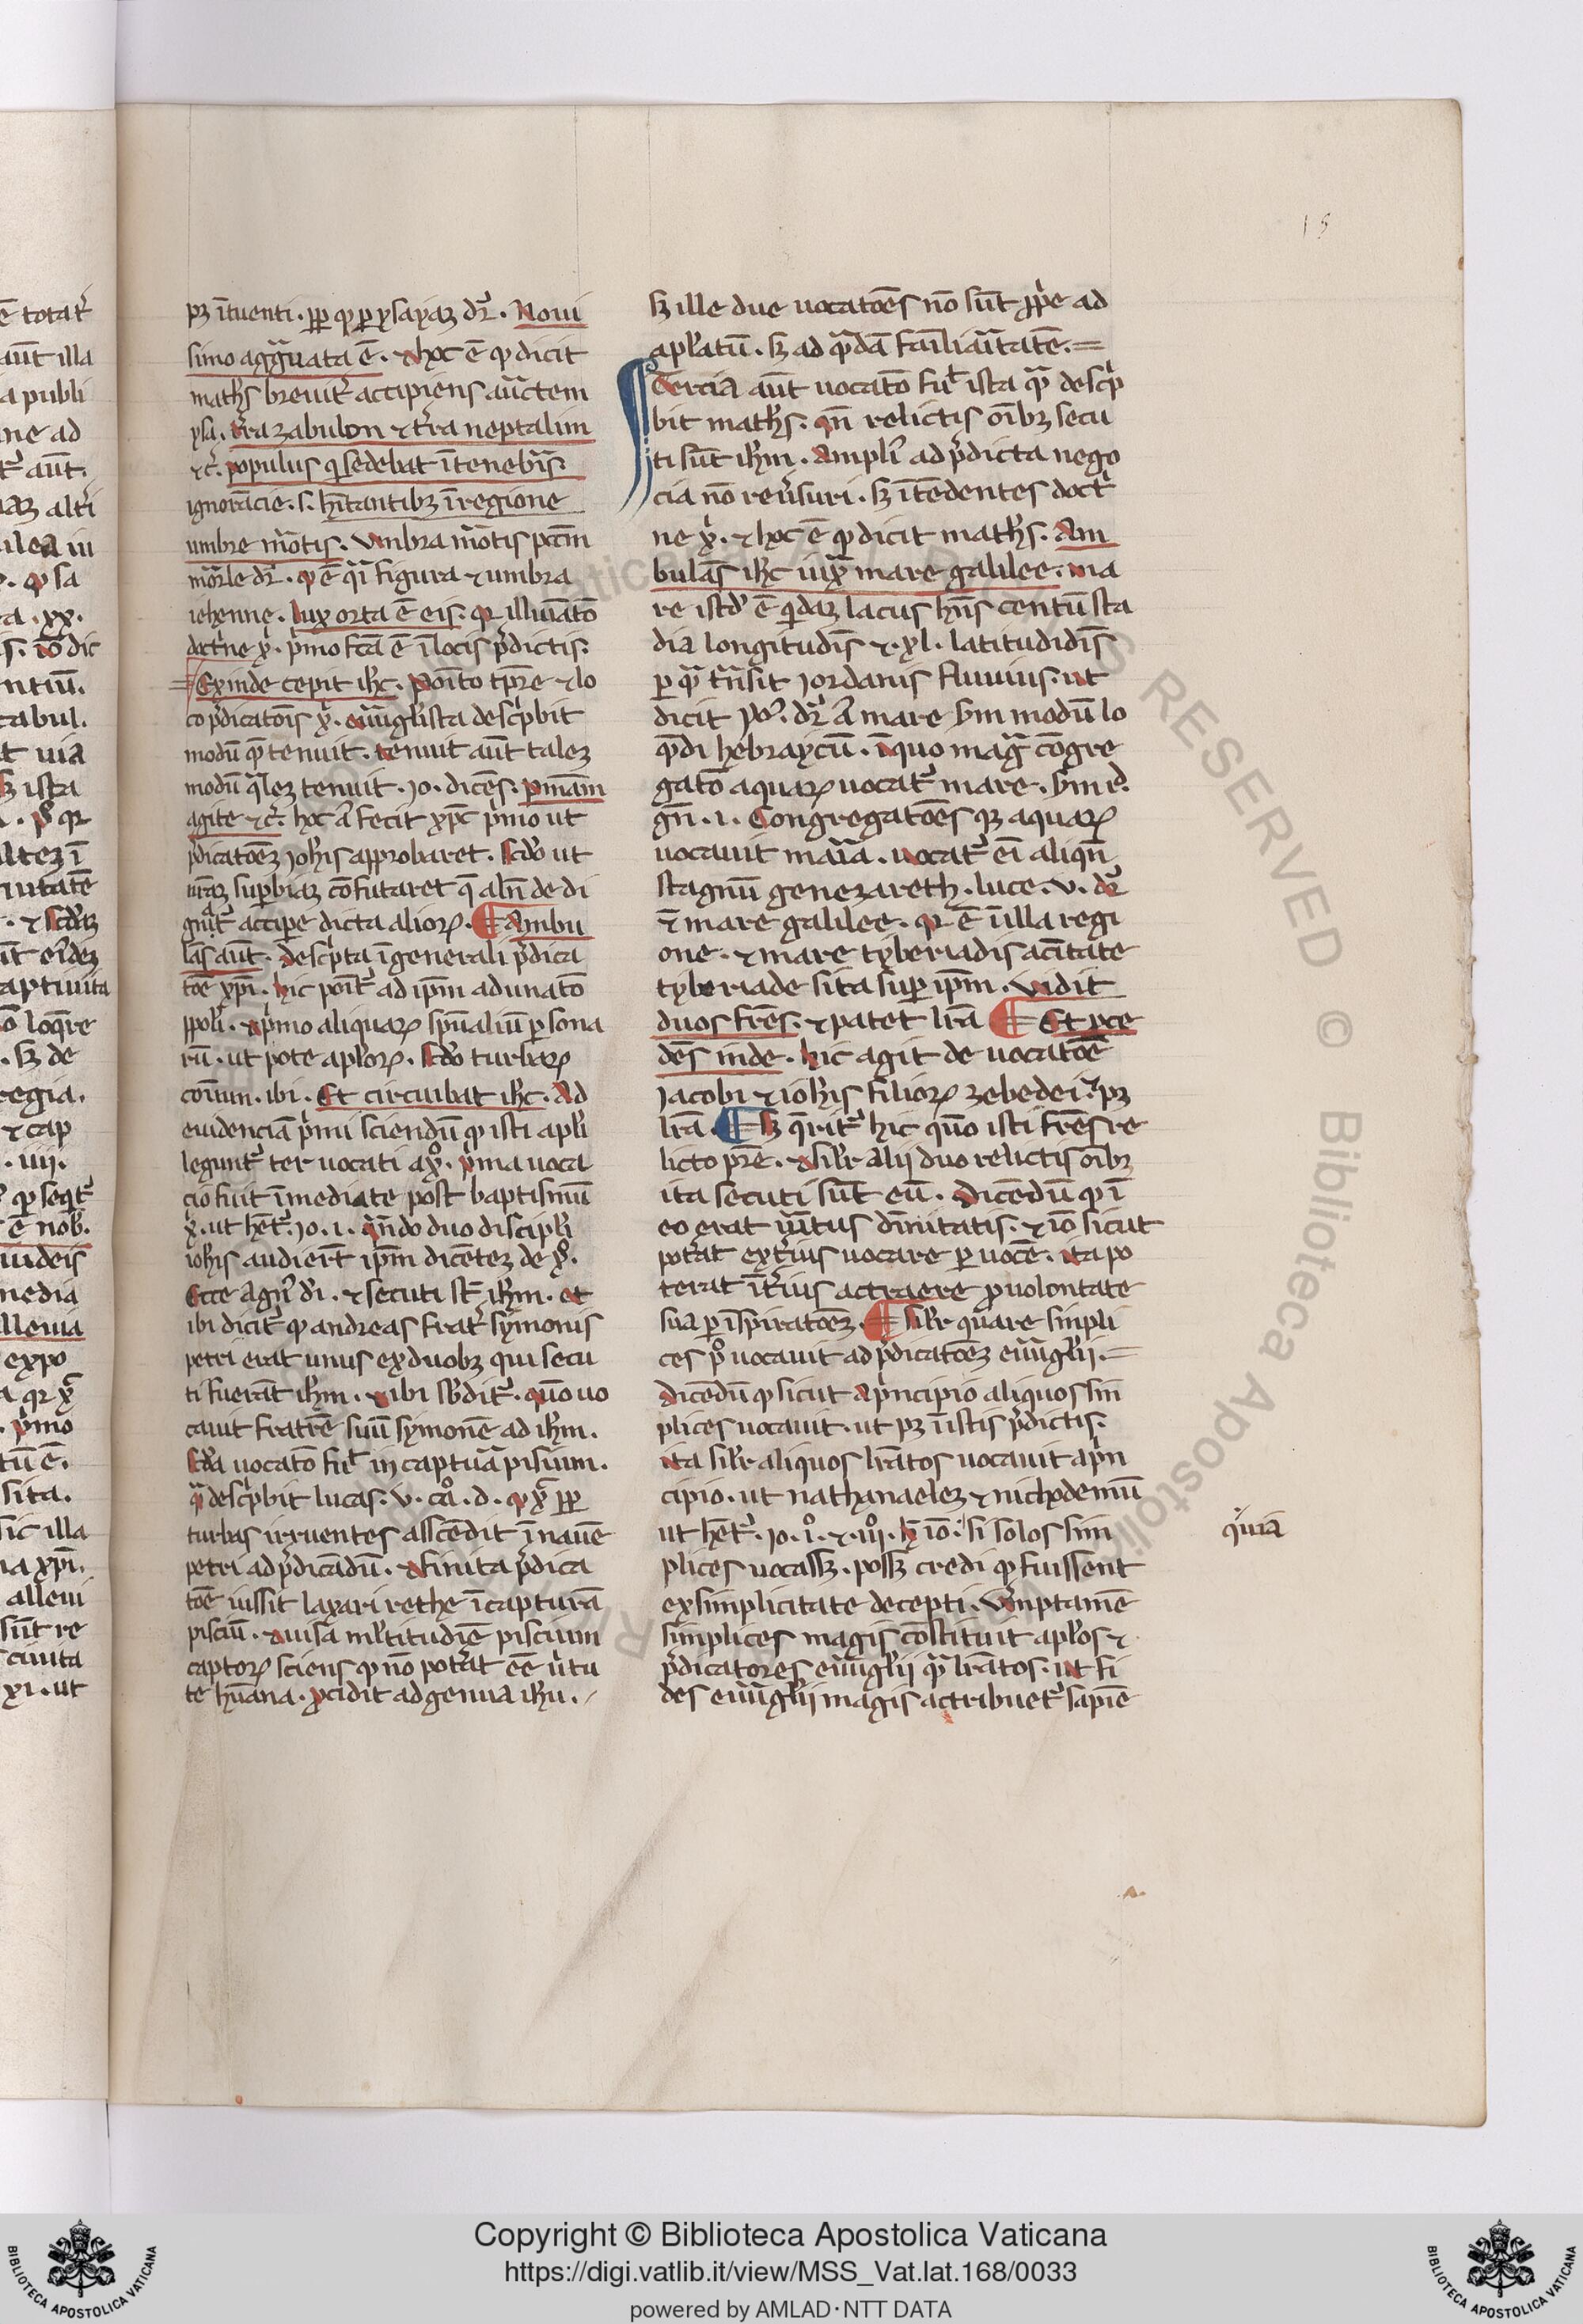 15
pꝫ ītuenti. ꝓp̄ ꝙ ꝑ ysayaꝫ dr̄. Noui
simo aggͣuata ē. ⁊ hoc ē ꝙ dicit
math̄s breuit̄ accipiens auctem
ysa. t̄ra zabulon ⁊ t̄ra neptalim
⁊c̄. populus q sedebat ī tenebris.
ignorācie. s. h̄itantibꝫ ī regione
umbre mͦtis. Vmbra mͦtis pctm̄
mͦrle dr̄. ꝙ ē qͥ figura ⁊ umbra
iehenne. lux orta ē eis. qꝛ illuīatō
doctͥne xͥ. pͥmo fc̄a ē ī locis p̄dictis.
Exinde cepit ih̄c. Poīto tp̄re ⁊ lo
co p̄dicatōis xͥ. euāgl̄ista descͥbit
modū quē tenuit. tenuit aūt taleꝫ
modū qͣleꝫ tenuit. Jo. dicēs. pnīam
agite ⁊c̄. hoc āt fecit xp̄c pͥmo ut
p̄dicatōeꝫ Joh̄is approbaret. Scd̄o ut
iuraꝫ suꝑbiaꝫ cōfutaret q̄ abn̄ de di
gnāt accipe dicta alioꝝ. ¶ Ambu
lās aūt. Descͥpta ī generali p̄dica
tōe xp̄i. hic poīt̄ ad ip̄m adunatō
pp̄li. ⁊ pͥmo aliquaꝝ spūaliū ꝑsona
rū. ut pote apl̄oꝝ. Scd̄o turbaꝝ
cōīum. ibi. Et circuibat ih̄c. Ad
euidenciā pͥmi sciendū ꝙ isti apl̄i
legunt̄ ter uocati a xͦ. pͥma uoca
cio fuit īmediate post baptismū
xͥ. ut hēt̄. Jo. i. qn̄do duo discipl̄i
ioh̄is audierūt ip̄m dicēteꝫ de xͦ.
Ecce agn̄ dī. ⁊ secuti st̄ ih̄m. et
ibi dicit̄ ꝙ andreas frat̄ symonis
petri erat unus ex duobꝫ qui secu
ti fuerāt ih̄m. ⁊ ibi sb̄dit̄. quō uo
cauit fratrē suū symonē ad ih̄m.
Scd̄a uocatō fuͭ in captura pisium.
qͣ descͥbit lucas. v. cͣo. d. ꝙ xͣ ꝓp̄
turbas irruentes asscēdit ī nauē
petri ad p̄dicādū. ⁊ finita p̄dica
tōe iussit laxari rethe ī capturā
pisciū. ⁊ uisa ml̄titudīe piscium
captoꝝ sciens ꝙ nō potͣat eē uͥtu
te hūana. ꝓcidit ad genua ih̄u.
sꝫ ille due uocatōes nō sūt ꝓp̄e ad
apl̄atū. sꝫ ad qͣdā fāiliaͥtatē.
Tercia aūt uocatō fuͭ ista qͣ descͥ
bit math̄s. qn̄ relictis oībꝫ secu
ti sūt ih̄m. Ampli ad p̄dicta nego
cia nō reu̔suri. sꝫ ītēdentes doctͥ
ne xͥ. ⁊ hoc ē ꝙ dicit math̄s. Am
bulās ih̄c iuxͣ mare galilee. ma
re istd̄ ē qͥdaꝫ lacus hn̄s centū sta
dia longitudīs ⁊. xl. latitudidīs
ꝑ quē tͣnsit Jordanis fluuius. ut
dicit pͦ. dr̄ āt mare sm̄ modū lo
quēdi hebraycū. ī quo magͣ cōgre
gatō aquaꝝ uocat̄ mare. sm̄ r.
gn̄. i. Congregatōes qꝫ aquaꝝ
uocauit maͥa. uocat̄ eī aliqn̄
stagnū genezareth. luce. v. dr̄
⁊ mare galilee. qꝛ ē ī illa regi
one. ⁊ mare tyberiadis a cītate
tyberiade sita suꝑ ip̄m. Vidit
duos fr̄es. ⁊ patet lr̄a ¶ Et ꝓce
dēs inde. hic agit de uocatōe
Jacobi ⁊ ioh̄is filioꝝ zebedei. pꝫ
lr̄a. ¶ Sꝫ qͥrit̄ hic quō isti fr̄es re
licto pr̄e. ⁊ sil̄r alij duo relictis oībꝫ
ita secuti sūt eū. Dicēdū ꝙ ī
eo erat uͥtus diuītatis. ⁊ iō sicut
potͣat extͥius uocare ꝑ uocē. ita po
terat ītͥius actraere ꝓ uolontate
sua ꝑ īspiratōeꝫ. ¶ Sil̄r quare simpli
ces pͦ uocauit ad p̄dicatōeꝫ euāgl̄ij.
Dicēdū ꝙ sicut a pͥncipio aliquos sim
plices uocauit. ut pꝫ ī istis p̄dictis.
ita sil̄r aliquos lr̄atos uocauit a pͥn
cipio. ut nathanaeleꝫ ⁊ nichodemū
ut hēt̄. Jo. iͦ. ⁊. iijͦ. h̄ iō. si solos sim
plices uocassꝫ. possꝫ credi ꝙ fuissent
ex simplicitate decepti. Vͤmptamē
simplices magis cōstituit apl̄os ⁊
p̄dicatores euāgl̄ij qͣ lr̄atos. ut fi
des euāgl̄ij magis actribuet̄ sapiē
qͥuia
Copyright © Biblioteca Apostolica Vaticana
https://digi.vatlib.it/view/MSS_Vat.lat.168/0033
powered by AMLAD·NTT DATA